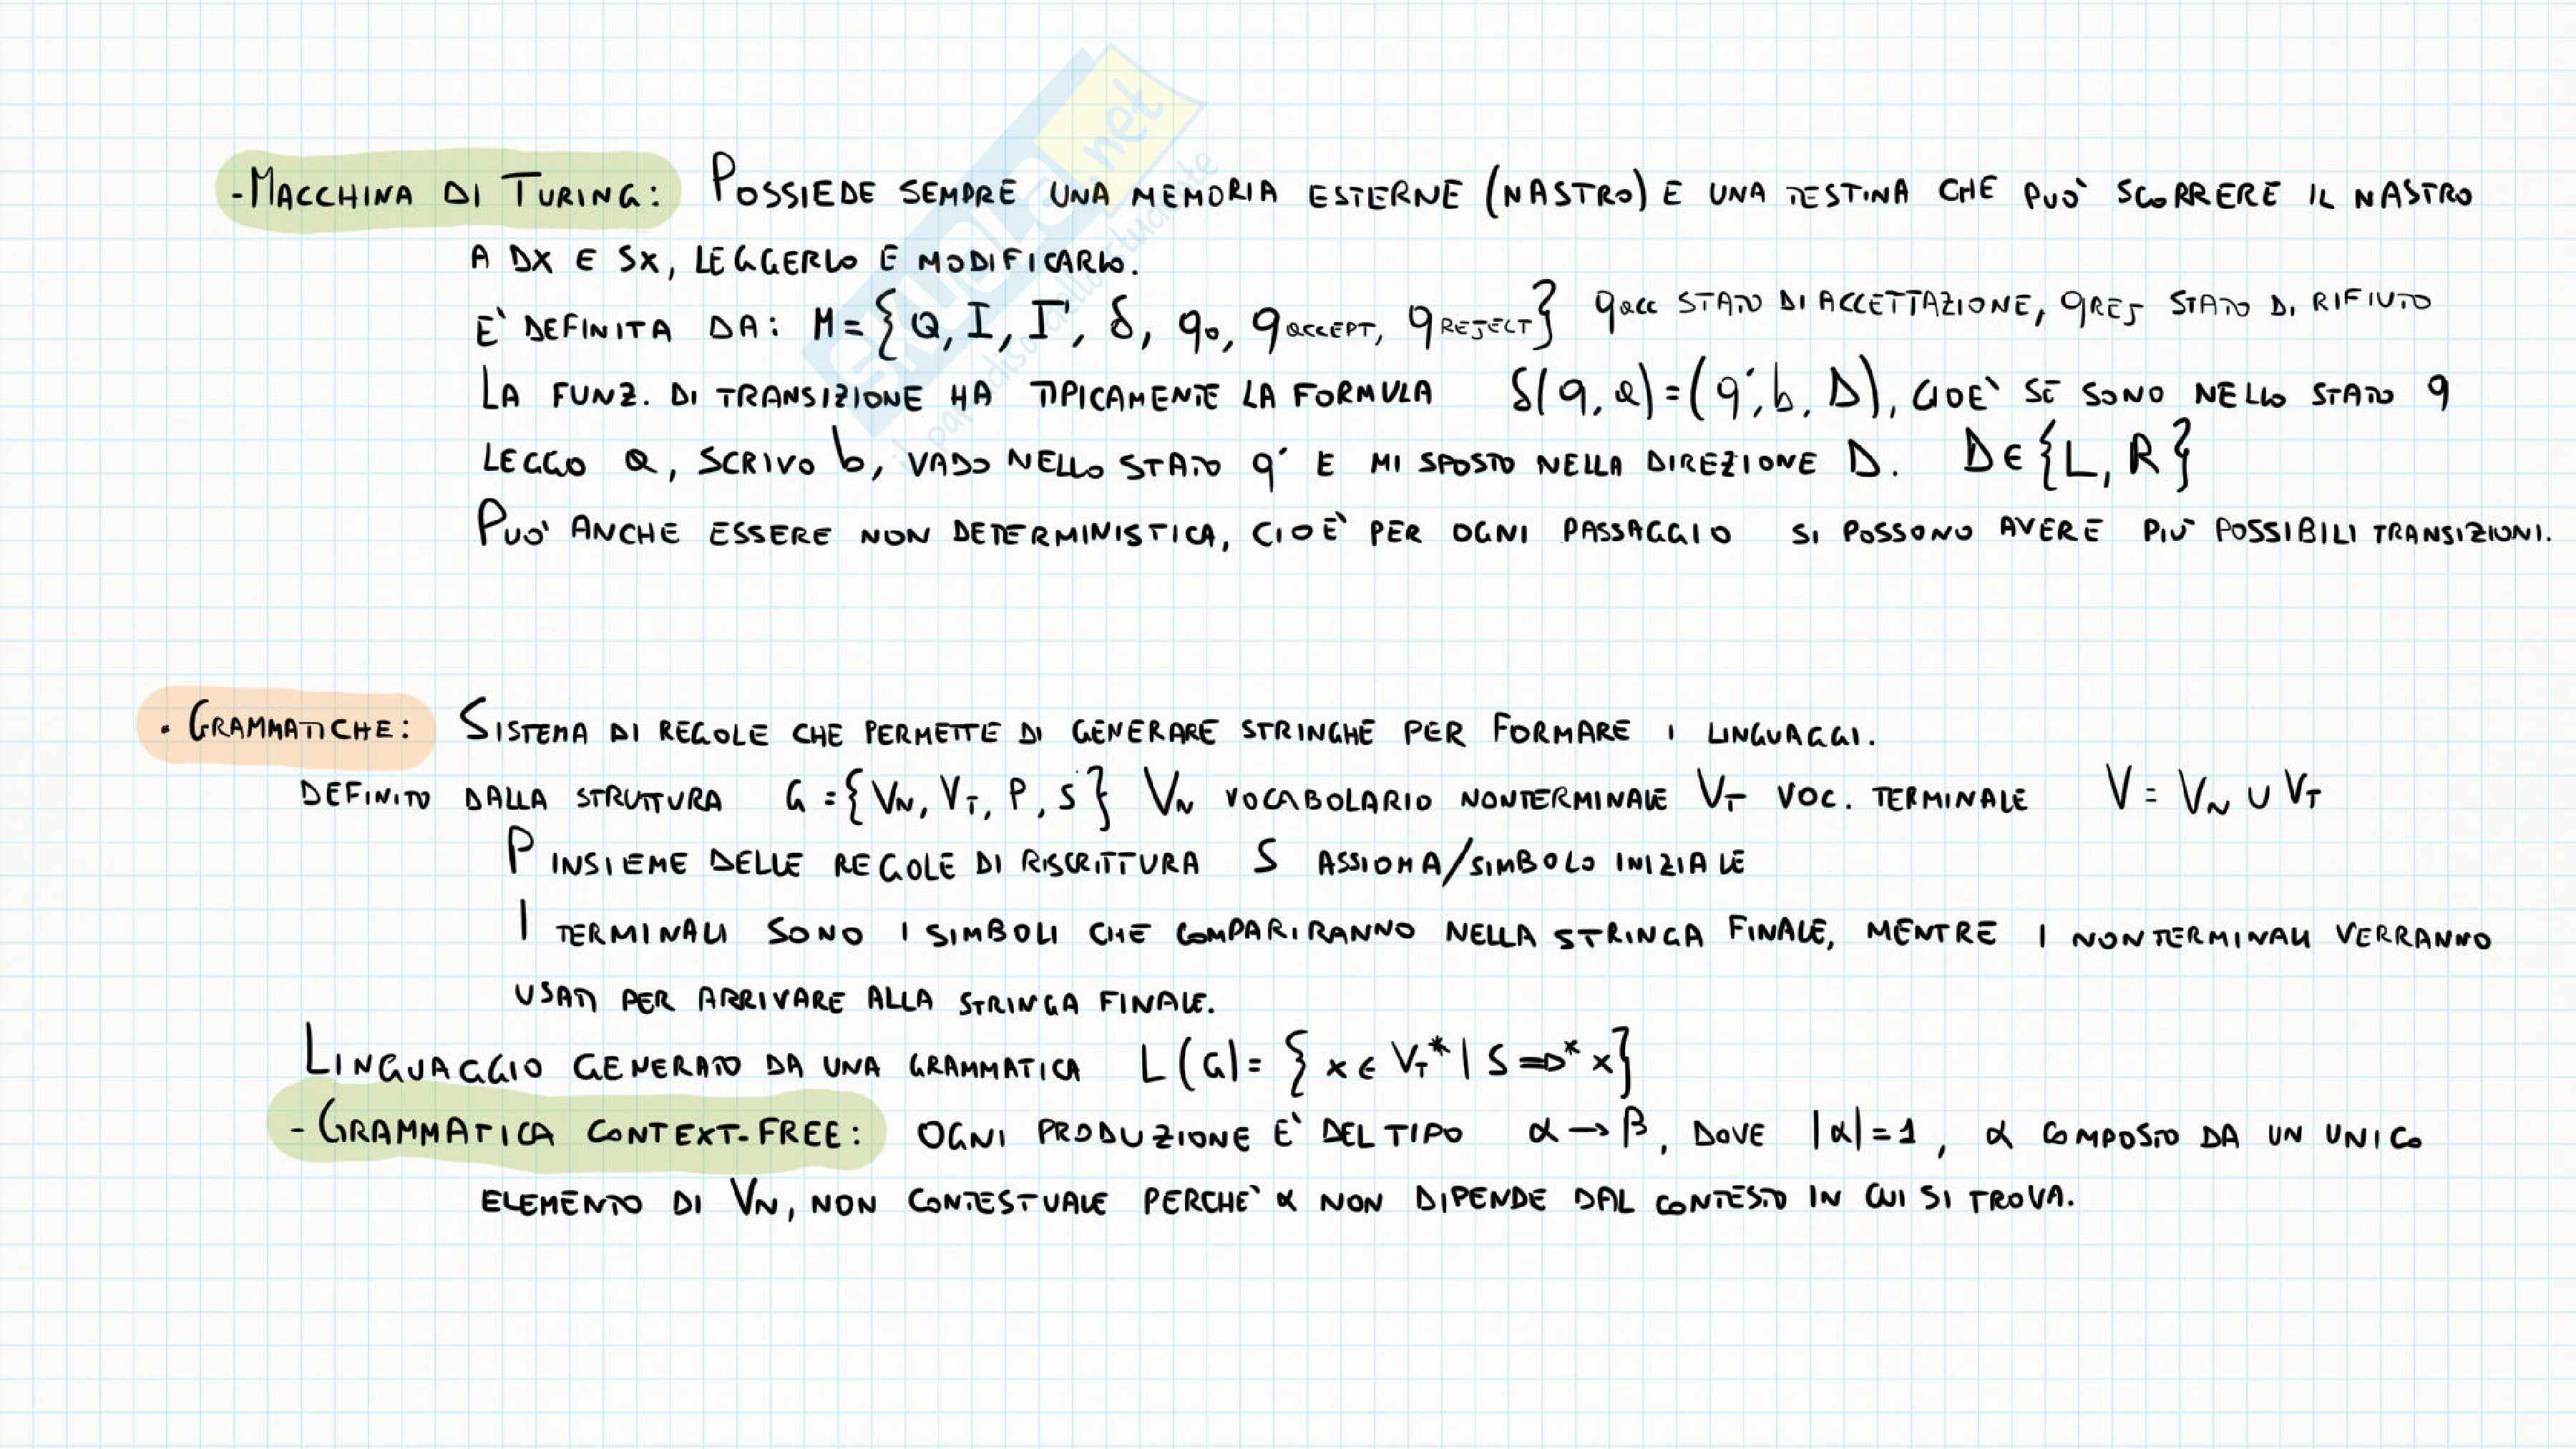 - MACCHINA DI TURING: POSSIEDE SEMPRE UNA MEMORIA ESTERNE (NASTRO) E UNA TESTINA CHE PUÒ SCORRERE IL NASTRO
A DX E SX, LEGGERLO E MODIFICARLO.
E' DEFINITA DA: M = {Q, I, Γ, δ, q0, qACCEPT, qREJECT} qacc STATO DI ACCETTAZIONE, qREJ STATO DI RIFIUTO
LA FUNZ. DI TRANSIZIONE HA TIPICAMENTE LA FORMULA δ(q, a) = (q', b, D), CIOE' SE SONO NELLO STATO q
LEGGO a, SCRIVO b, VADO NELLO STATO q' E MI SPOSTO NELLA DIREZIONE D. D∈{L, R}
PUO' ANCHE ESSERE NON DETERMINISTICA, CIOE' PER OGNI PASSAGGIO SI POSSONO AVERE PIU' POSSIBILI TRANSIZIONI.
• GRAMMATICHE: SISTEMA DI REGOLE CHE PERMETTE DI GENERARE STRINGHE PER FORMARE I LINGUAGGI.
DEFINITO DALLA STRUTTURA G = {VN, VT, P, S} VN VOCABOLARIO NONTERMINALE VT VOC. TERMINALE V = VN ∪ VT
P INSIEME DELLE REGOLE DI RISCRITTURA S ASSIOMA/SIMBOLO INIZIALE
I TERMINALI SONO I SIMBOLI CHE COMPARIRANNO NELLA STRINGA FINALE, MENTRE I NONTERMINALI VERRANNO
USATI PER ARRIVARE ALLA STRINGA FINALE.
LINGUAGGIO GENERATO DA UNA GRAMMATICA L(G) = { x ∈ VT* | S ⇒* x}
- GRAMMATICA CONTEXT-FREE: OGNI PRODUZIONE E' DEL TIPO α → β, DOVE |α| = 1, α COMPOSTO DA UN UNICO
ELEMENTO DI VN, NON CONTESTUALE PERCHE' α NON DIPENDE DAL CONTESTO IN CUI SI TROVA.